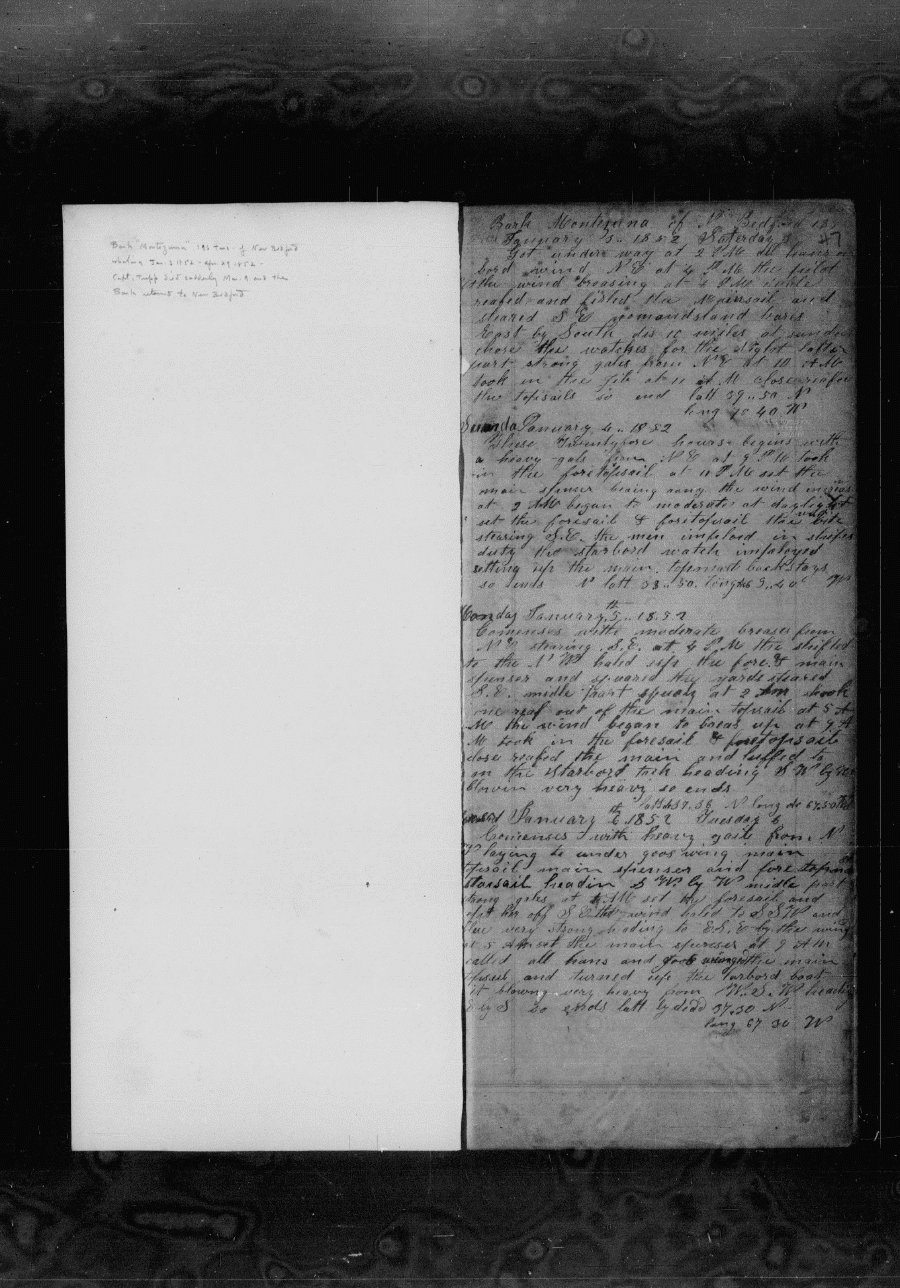 Bark "Montezuma" 195 tons of New Bedford
whaling Jan. 3 1852 - Apr. 29 1852 -
Capt. Tripp died suddenly Mar. 9 and the
Bark returned to New Bedford
Bark Montezuma of N Bedford 18
January 3 - 1852 Saterday 47
Got under way at 2 PM all hands on
bord wind N E at 4 PM the pilot
the wind breasing at
reafed and the Mainsail and
steared S E nomansland bares
East by South dis 10 miles at sundown
chose the watches for the Night latter
part strong gales from N E at 10 AM
took in the jib at 11 A M close reafed
the topsails so end latt 39..50 N
long 70 40 W
Sunnda January 4..1852
These Twentyfore hourse begins with
a heavy gale from N E at 9 P M took
in the foretopsail at 11 P M set the
main spencer being rang the wind
at 2 AM began to moderate at daylight
set the foresail & foretopsail the
stearing S.E. the men imploied in ships
duty the starbord watch imployed
setting up the main topmast backstays
so ends N latt 38..50. Long 40
Monday January 5th..1852
Comenses withe moderate breases from
N E stearing S.E. at 4 P M the shifted
to the N W haled up the fore & main
spenser and squared the yards steared
S.E. midle part squaly at 2 am shook
one reaf out of the main topsail at 5 A
M the wind began to breas up at 9 A
M took in the foresail & foretopsail
close reafed the main and luffed to
on the starbord tack heading S W by W
blowin very heavy so ends
latt 37.56 N long 67.50
January 6th 1852 Tuesday 6
Comenses with heavy gails from N
W laying to under goos wing main
topsail main spenser and fore topmast
staesail headin S W by W midle part
strong gales at 4 AM set the foresail and
kept her off S E the wind haled to S S W and
blue very strong heading to E S E by the wind
at 5 AM set the main spenser at 9 A M
called all hans and goos winged the main
topsail and turned up the larbord boat
it blowing very heavy from W.S.W heading
by S So ends latt by dedd 37.30 N
long 67 30 W